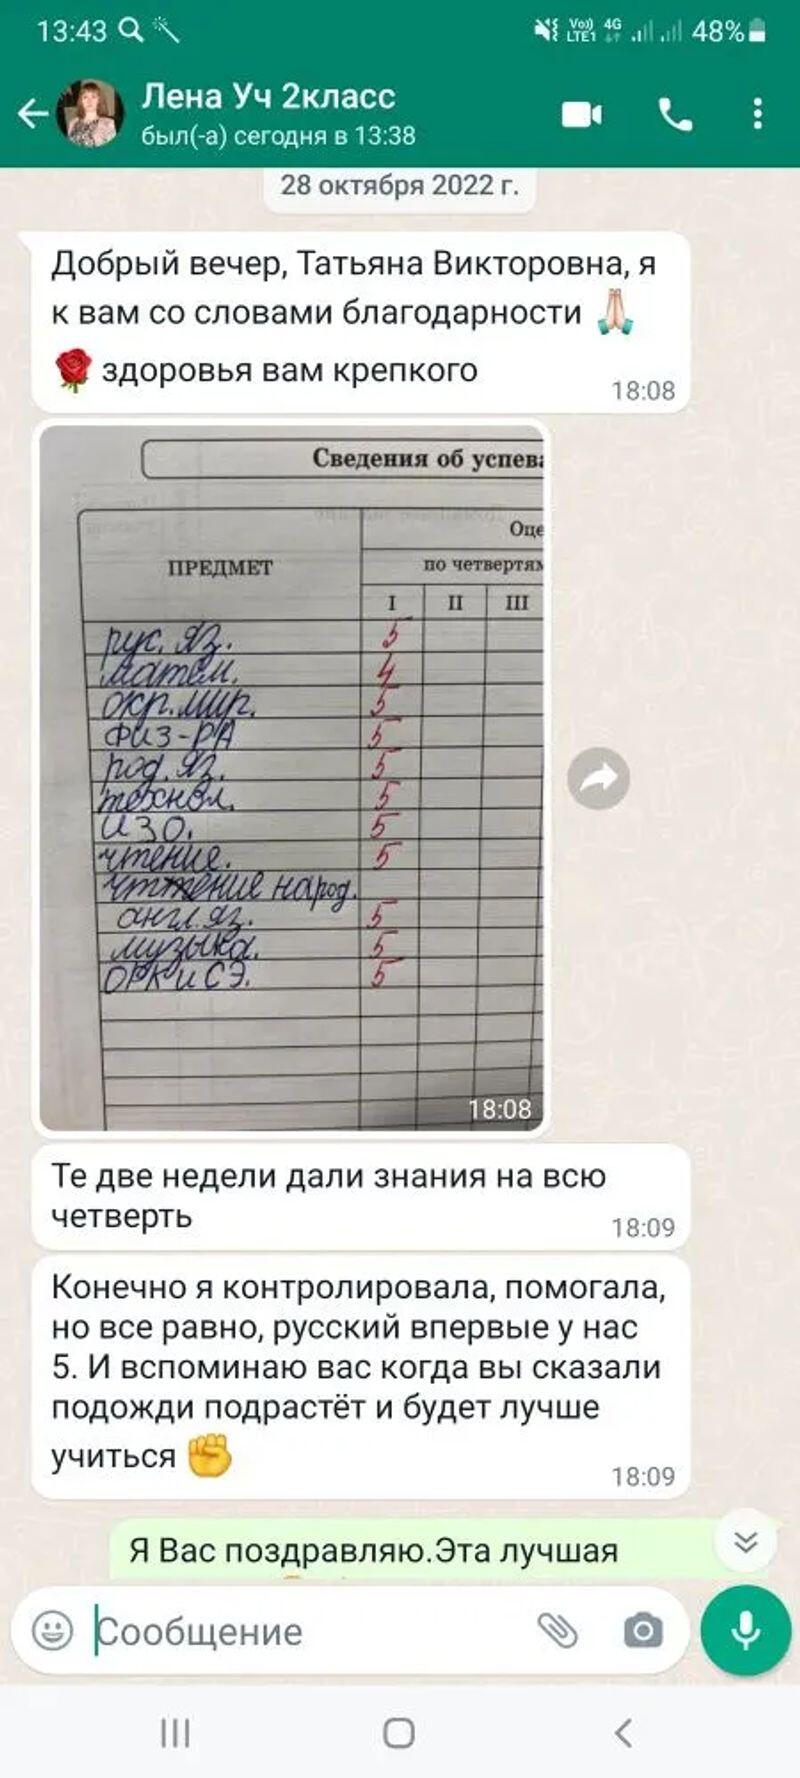 13:43 Vo)) LTE1 4G 48%
Лена Уч 2класс
был(-а) сегодня в 13:38
28 октября 2022 г.
Добрый вечер, Татьяна Викторовна, я
к вам со словами благодарности 🙏🏻
🌹 здоровья вам крепкого
18:08
Сведения об успева
Оце
ПРЕДМЕТ по четвертям
I II III
рус. яз. 5
матем. 4
окр. мир. 5
физ-РА 5
род. яз. 5
технол. 5
ИЗО. 5
чтение. 5
чттение народ.
англ. яз. 5
музыка. 5
ОРКиСЭ. 5
18:08
Те две недели дали знания на всю
четверть
18:09
Конечно я контролировала, помогала,
но все равно, русский впервые у нас
5. И вспоминаю вас когда вы сказали
подожди подрастёт и будет лучше
учиться ✊
18:09
Я Вас поздравляю.Эта лучшая
Сообщение